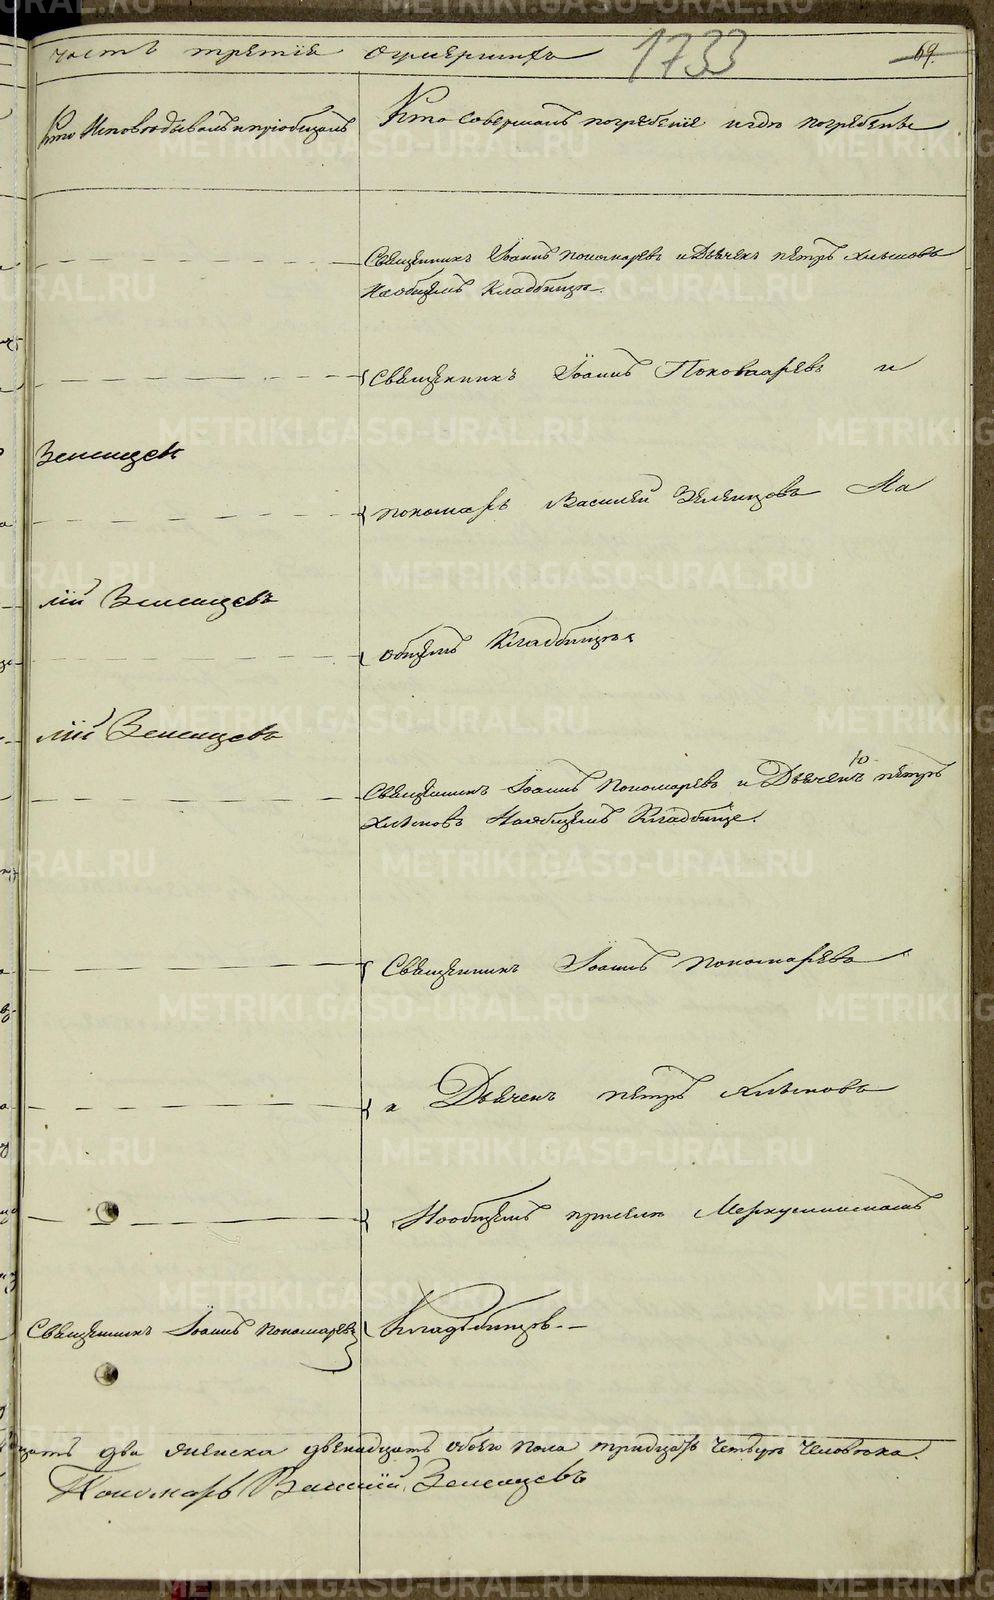 часть третія оумершихъ 1733 69.
Кто Исповѣдывалъ и пріобщалъ
Кто совершалъ погребеніе и гдѣ погребены
Священникъ Іоаннъ Пономаревъ и Дьячекъ Петръ Хлыновъ
На общемъ Кладбищѣ.
Священникъ Іоаннъ Пономаревъ и
Зеленцевъ
пономарь Василей Зеленцовъ На
лій Зеленцевъ
общемъ Кладбищѣ
лій Зеленцевъ
Священникъ Іоаннъ Пономаревъ и Дьячекъ Петръ
Хлыновъ На общемъ Кладбище.
Священникъ Іоаннъ Пономаревъ
и Дьячекъ Петръ Хлыновъ
На общемъ при селѣ Меркушинскомъ
Священникъ Іоаннъ Пономаревъ Кладбищѣ.
цать два женска двенадцать обоего пола тридцать четыре человека.
Пономарь Василій Зеленцевъ
METRIKI.GASO-URAL.RU